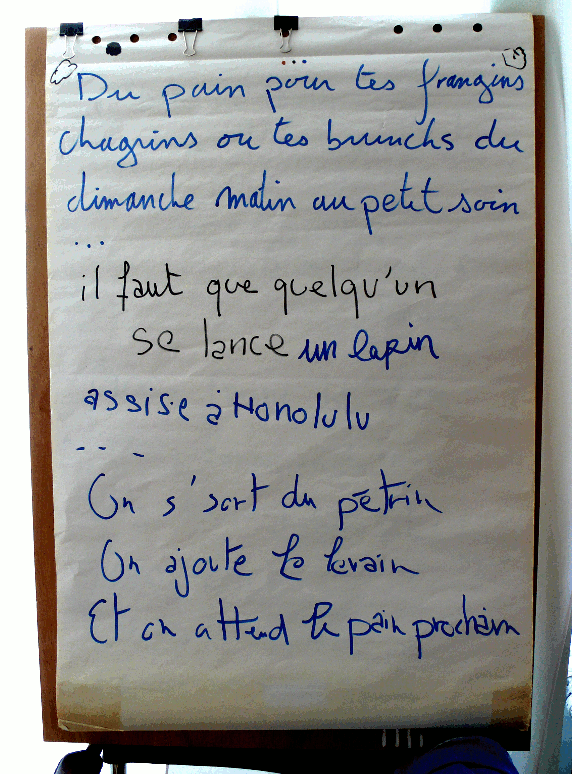 ...
Du pain pour tes frangins
chagrins ou tes brunchs du
dimanche matin au petit soin
...
il faut que quelqu'un
se lance un lapin
assise à Honolulu
...
On s'sort du pétrin
On ajoute le levain
Et on attend le pain prochain